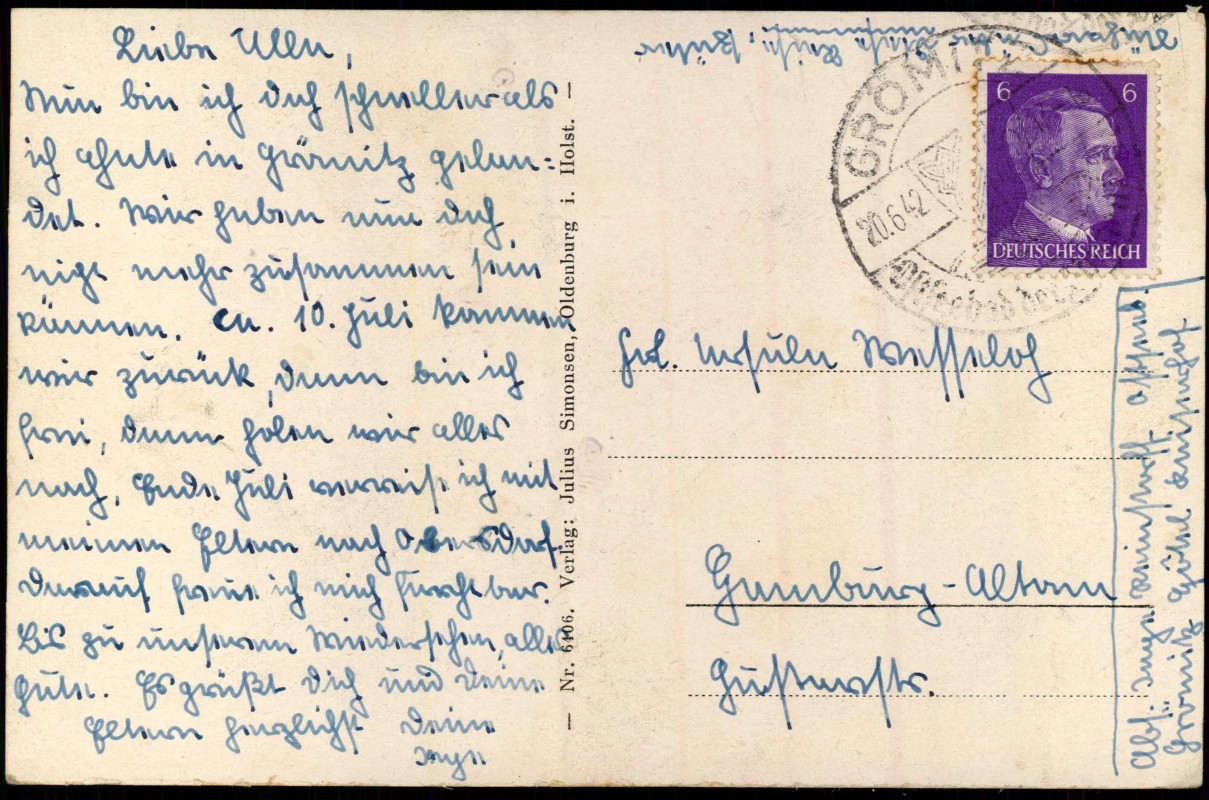 Liebe Ulla,
Nun bin ich doch schneller als
ich ahnte in Grömitz gelan-
det. Wir haben nun doch
nicht mehr zusammen sein
können. Ca. 10. Juli kommen
wir zurück, dann bin ich
frei, dann holen wir alles
nach. Ende Juli verreise ich mit
meinen Eltern nach Oberstdorf.
Darauf freue ich mich furchtbar.
Bis zu unserem Wiedersehen, alles
Gute. Es grüßt Dich und Deine
Eltern herzlichst Deine
Inge
— Nr. 6406. Verlag: Julius Simonsen, Oldenburg i. Holst. —
GRÖMITZ
20.6.42
Ostseebad
6 6
DEUTSCHES REICH
Frl. Ursula Wesseloh
Hamburg-Altona
Gustavstr.
Abs: Inge
Grömitz Hotel